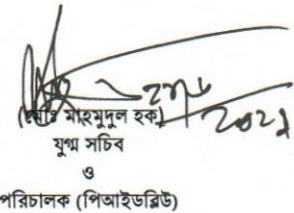 (মোঃ মাহমুদুল হক)
যুগ্ম সচিব
ও
পরিচালক (পিআইডব্লিউ)